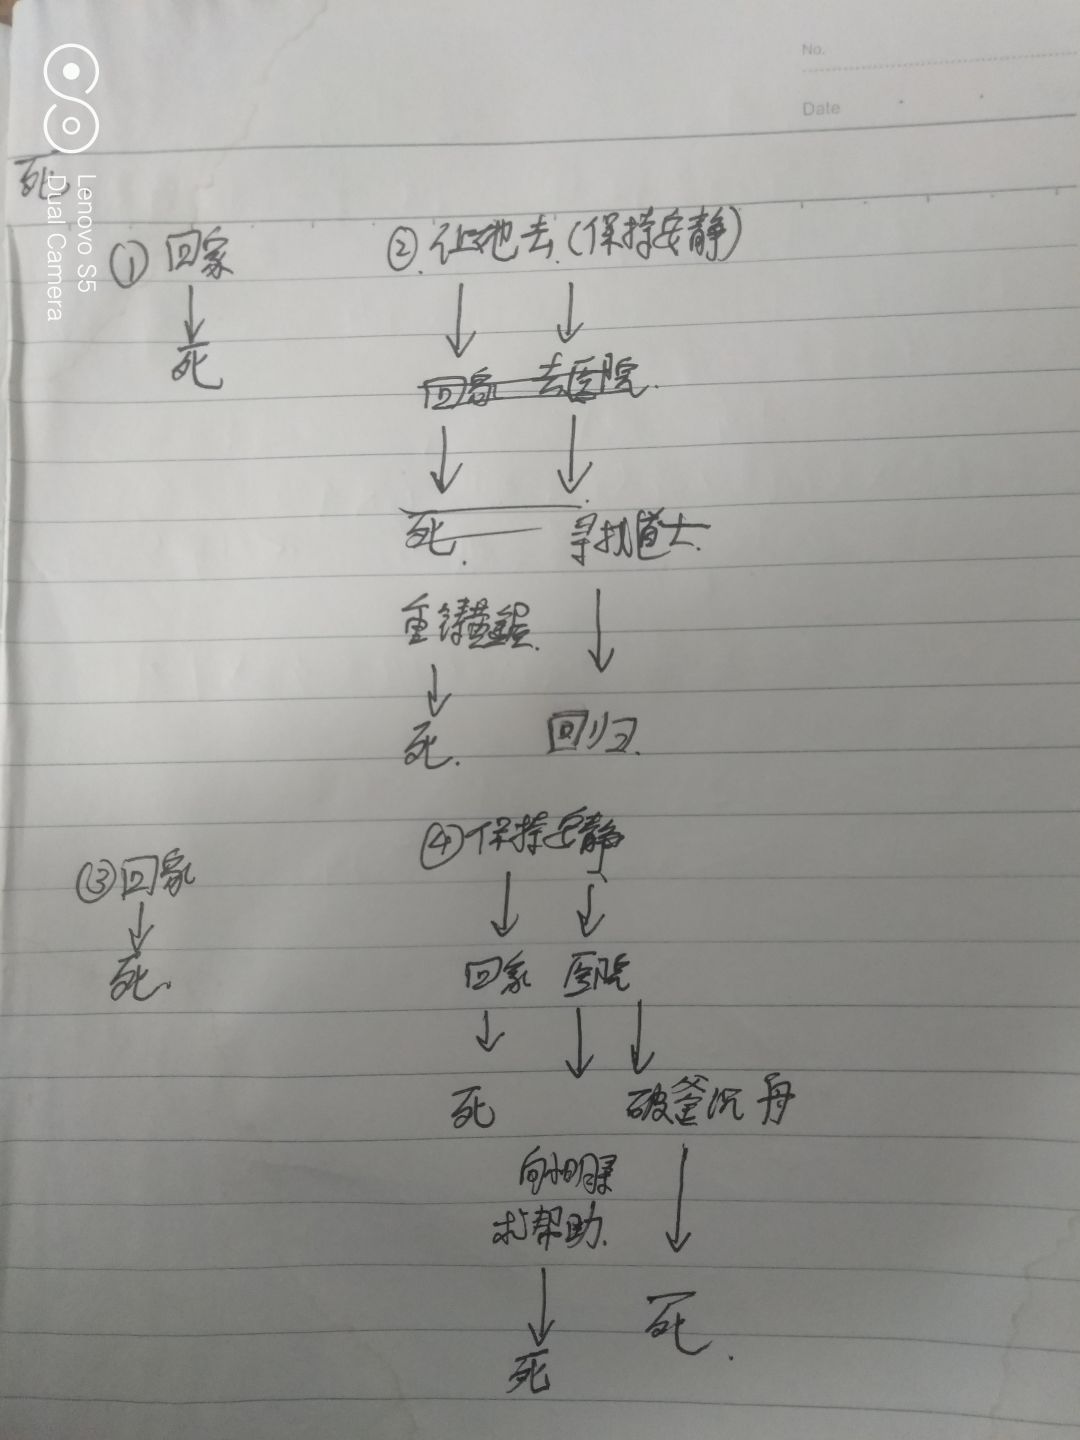 No.
Date
死
Lenovo S5
Dual Camera
① 回家
② 让她去 (保持安静)
死
回家 去医院.
死. 寻找道士.
重铸黄金
死. 回归.
③ 回家
④ 保持安静
死.
回家 医院
死 破釜沉舟
向小明
求帮助.
死.
死